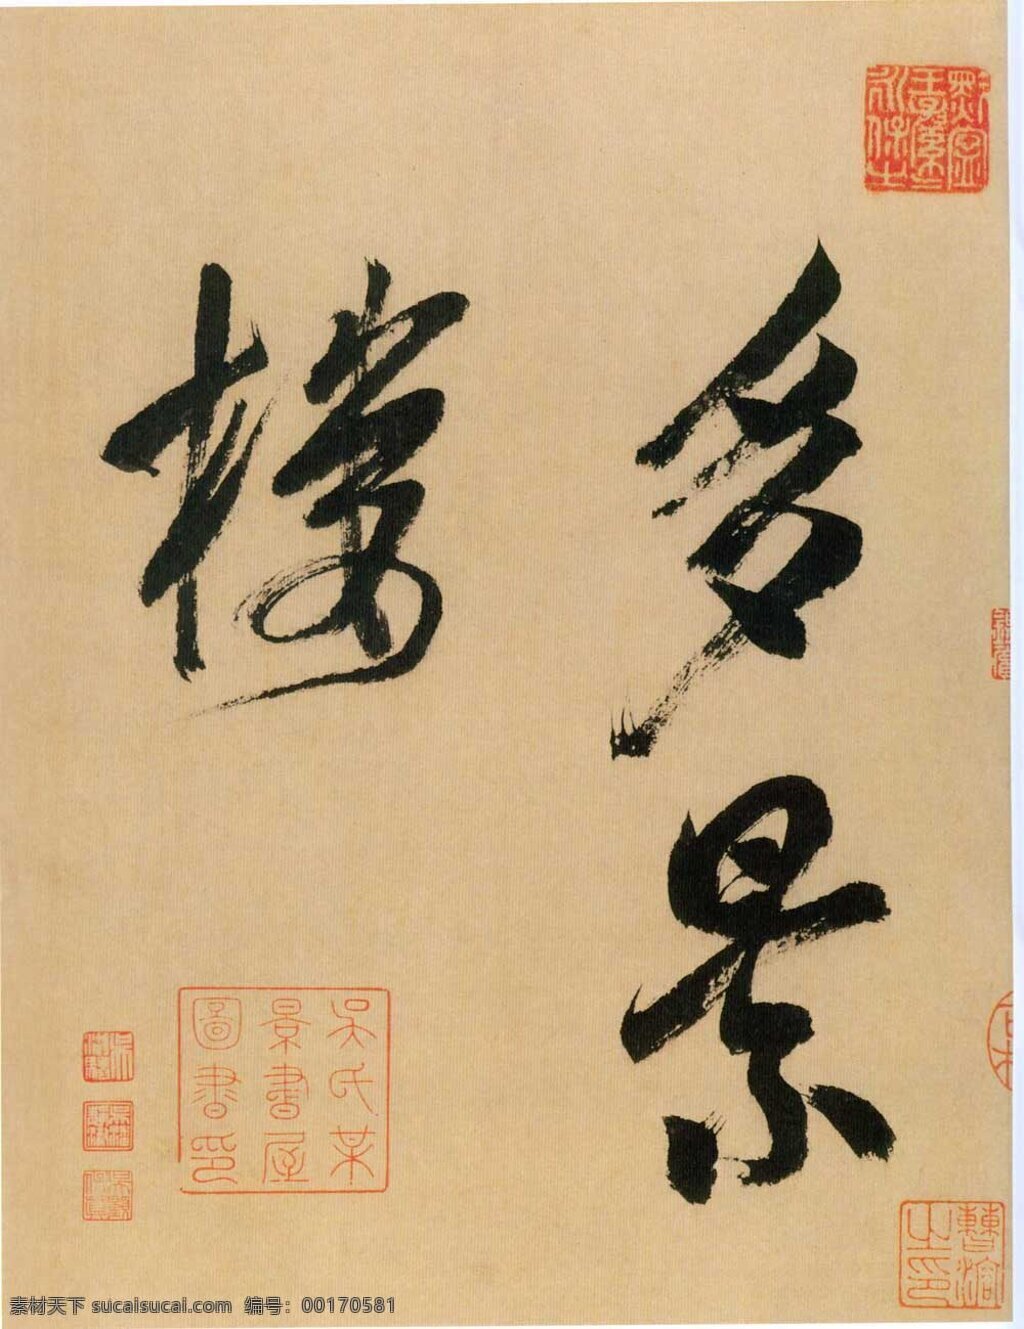 多景
樓
吳氏某
景書屋
圖書印
曹溶
之印
素材天下 sucaisucai.com 编号：00170581